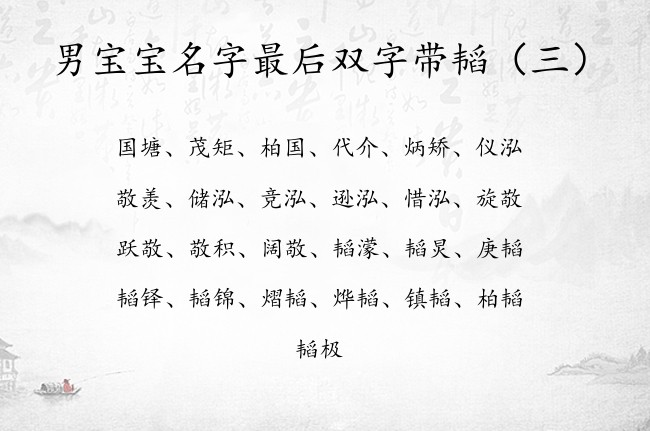 男宝宝名字最后双字带韬（三）
国塘、茂矩、柏国、代介、炳矫、仪泓
敬羡、储泓、竞泓、逊泓、惜泓、旋敬
跃敬、敬积、阔敬、韬濛、韬炅、庚韬
韬铎、韬锦、熠韬、烨韬、镇韬、柏韬
韬极